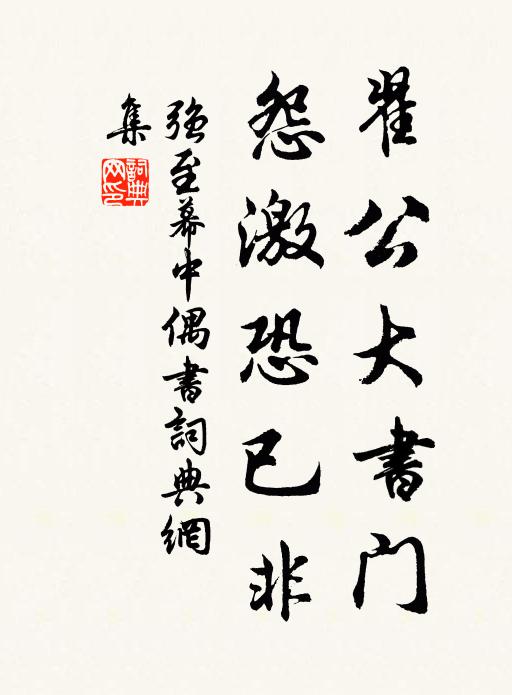 翟公大書门
怨激恐已非
強至幕中偶書詞典網
集
詞典网印